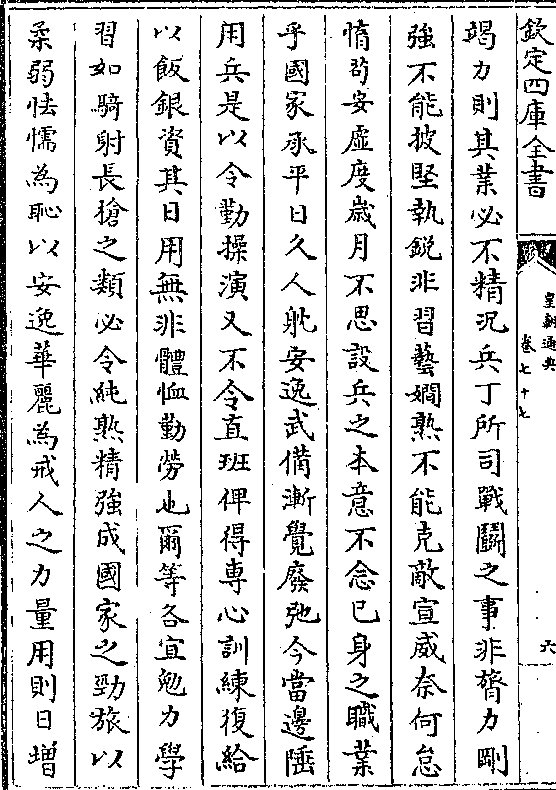 欽定四庫全書
皇朝通典
卷七十七
六
竭力則其業必不精況兵丁所司戰鬭之事非膂力剛
強不能披堅執銳非習藝嫺熟不能克敵宣威奈何怠
惰茍安虛度歲月不思設兵之本意不念已身之職業
乎國家承平日久人躭安逸武備漸覺廢弛今當邊陲
用兵是以令勤操演又不令直班俾得專心訓練復給
以飯銀資其日用無非體恤勤勞也爾等各宜勉力學
習如騎射長搶之類必令純熟精強成國家之勁旅以
柔弱怯懦為恥以安逸華麗為戒人之力量用則日增